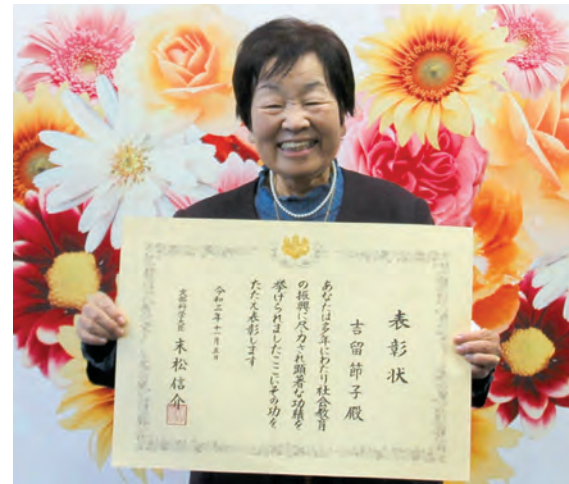 表彰状
吉留節子殿
あなたは多年にわたり社会教育
の振興に尽力され顕著な功績を
挙げられましたここにその功を
たたえ表彰します
令和三年十一月五日
文部科学大臣 末松信介